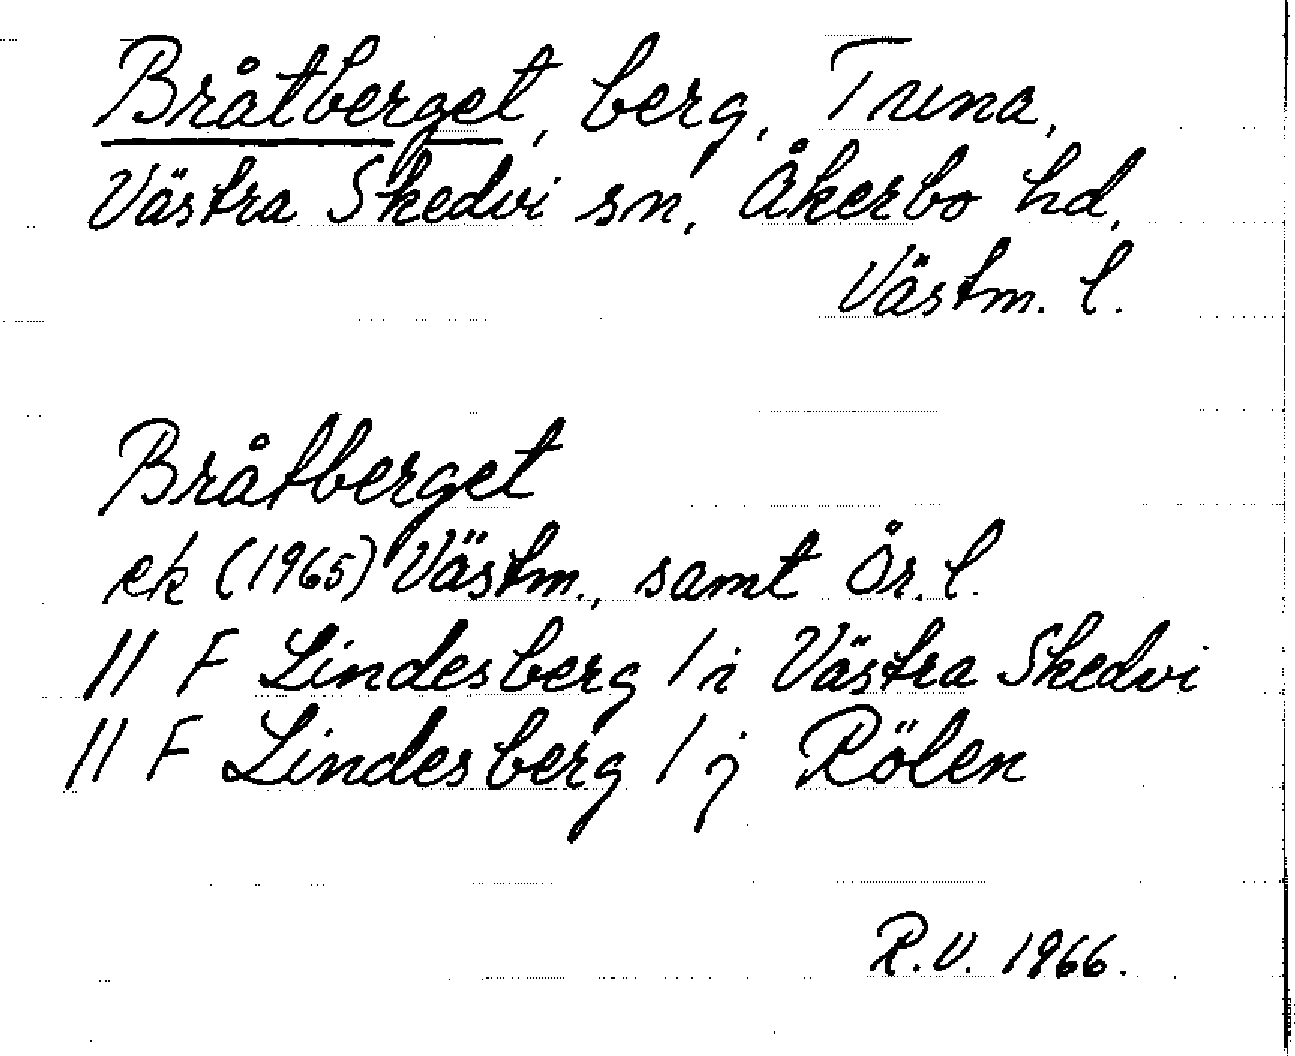 Bråtberget, berg, Truna,
Västra Skedvi sn, Åkerbo hd,
Västm. l.
Bråtberget
ek (1965) Västm., samt Ör. l.
11 F Lindesberg / i Västra Skedvi
11 F Lindesberg / j Rölen
R.V. 1966.